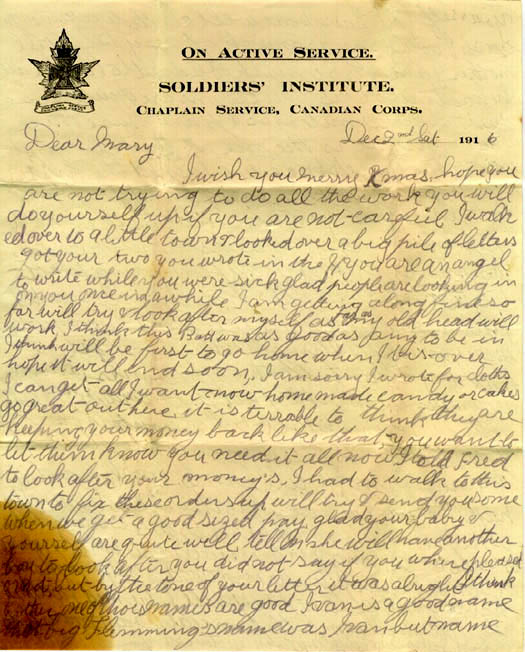 ON ACTIVE SERVICE.
SOLDIERS' INSTITUTE.
CHAPLAIN SERVICE, CANADIAN CORPS.
Dec 2nd Sat 1916
Dear Mary
I wish you merry Xmas. hope you
are not trying to do all the work you will
do yourself up if you are not careful I walk
ed over to a little town & looked over a big pile of letters
got your two you wrote in the you are an angel
to write while you were sick glad people are looking in
on you once in awhile I am getting along fine so
far will try & look after myself as far as my old head will
work. I think this Batt is as good as any to be in
I think will be first to go home when war is over
hope it will end soon, I am sorry I wrote for cloths
I can get all I want now home made candy or cakes
go great out here it is terrable to think they are
keeping your money back like that you want to
let them know you need it all now I told Fred
to look after your money's, I had to walk to this
town to fix these orders up will try & send you some
when we get a good sized pay, glad your baby &
yourself are quite well tell she will have another
boy to look after you did not say if you where pleased
but by the tone of your letter it was alright I think
names are good Ivan is a good name
that big Flemming's name was Ivan but name